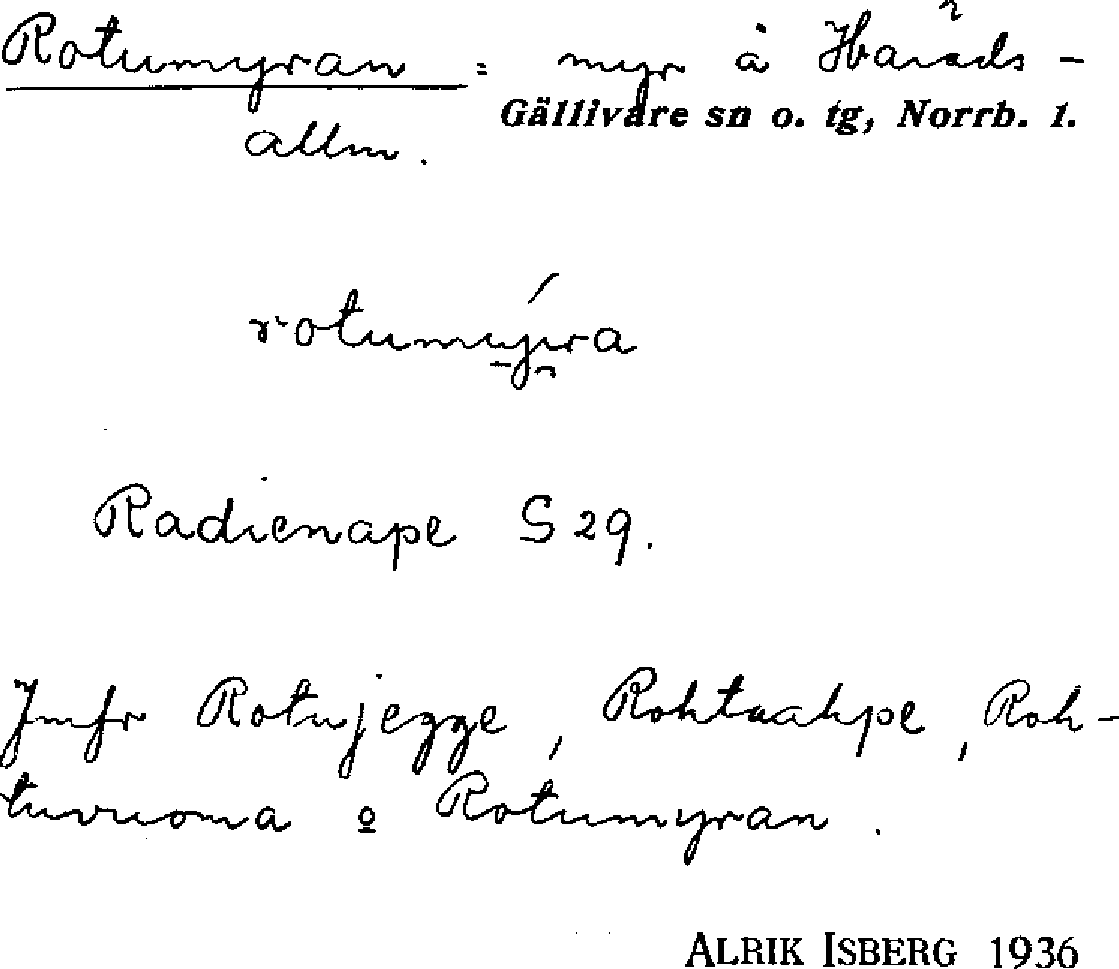 Rotumyran = myr å Harads-
Gällivare sn o. tg, Norrb. l.
allm.
rotumyra
Radienape S 29.
Jmfr Rotujegge, Rohtuahpe, Roh-
tuvuoma o Rotumyran.
ALRIK ISBERG 1936